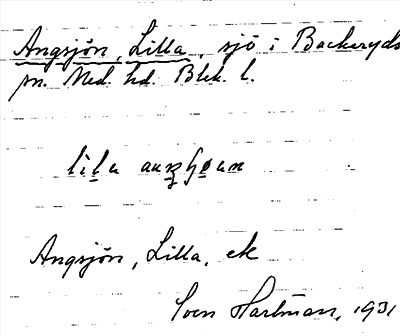 Angsjön, Lilla, sjö i Backaryds
sn. Med. hd. Blek. l.
Angsjön, Lilla, ek
Sven Hartman, 1931